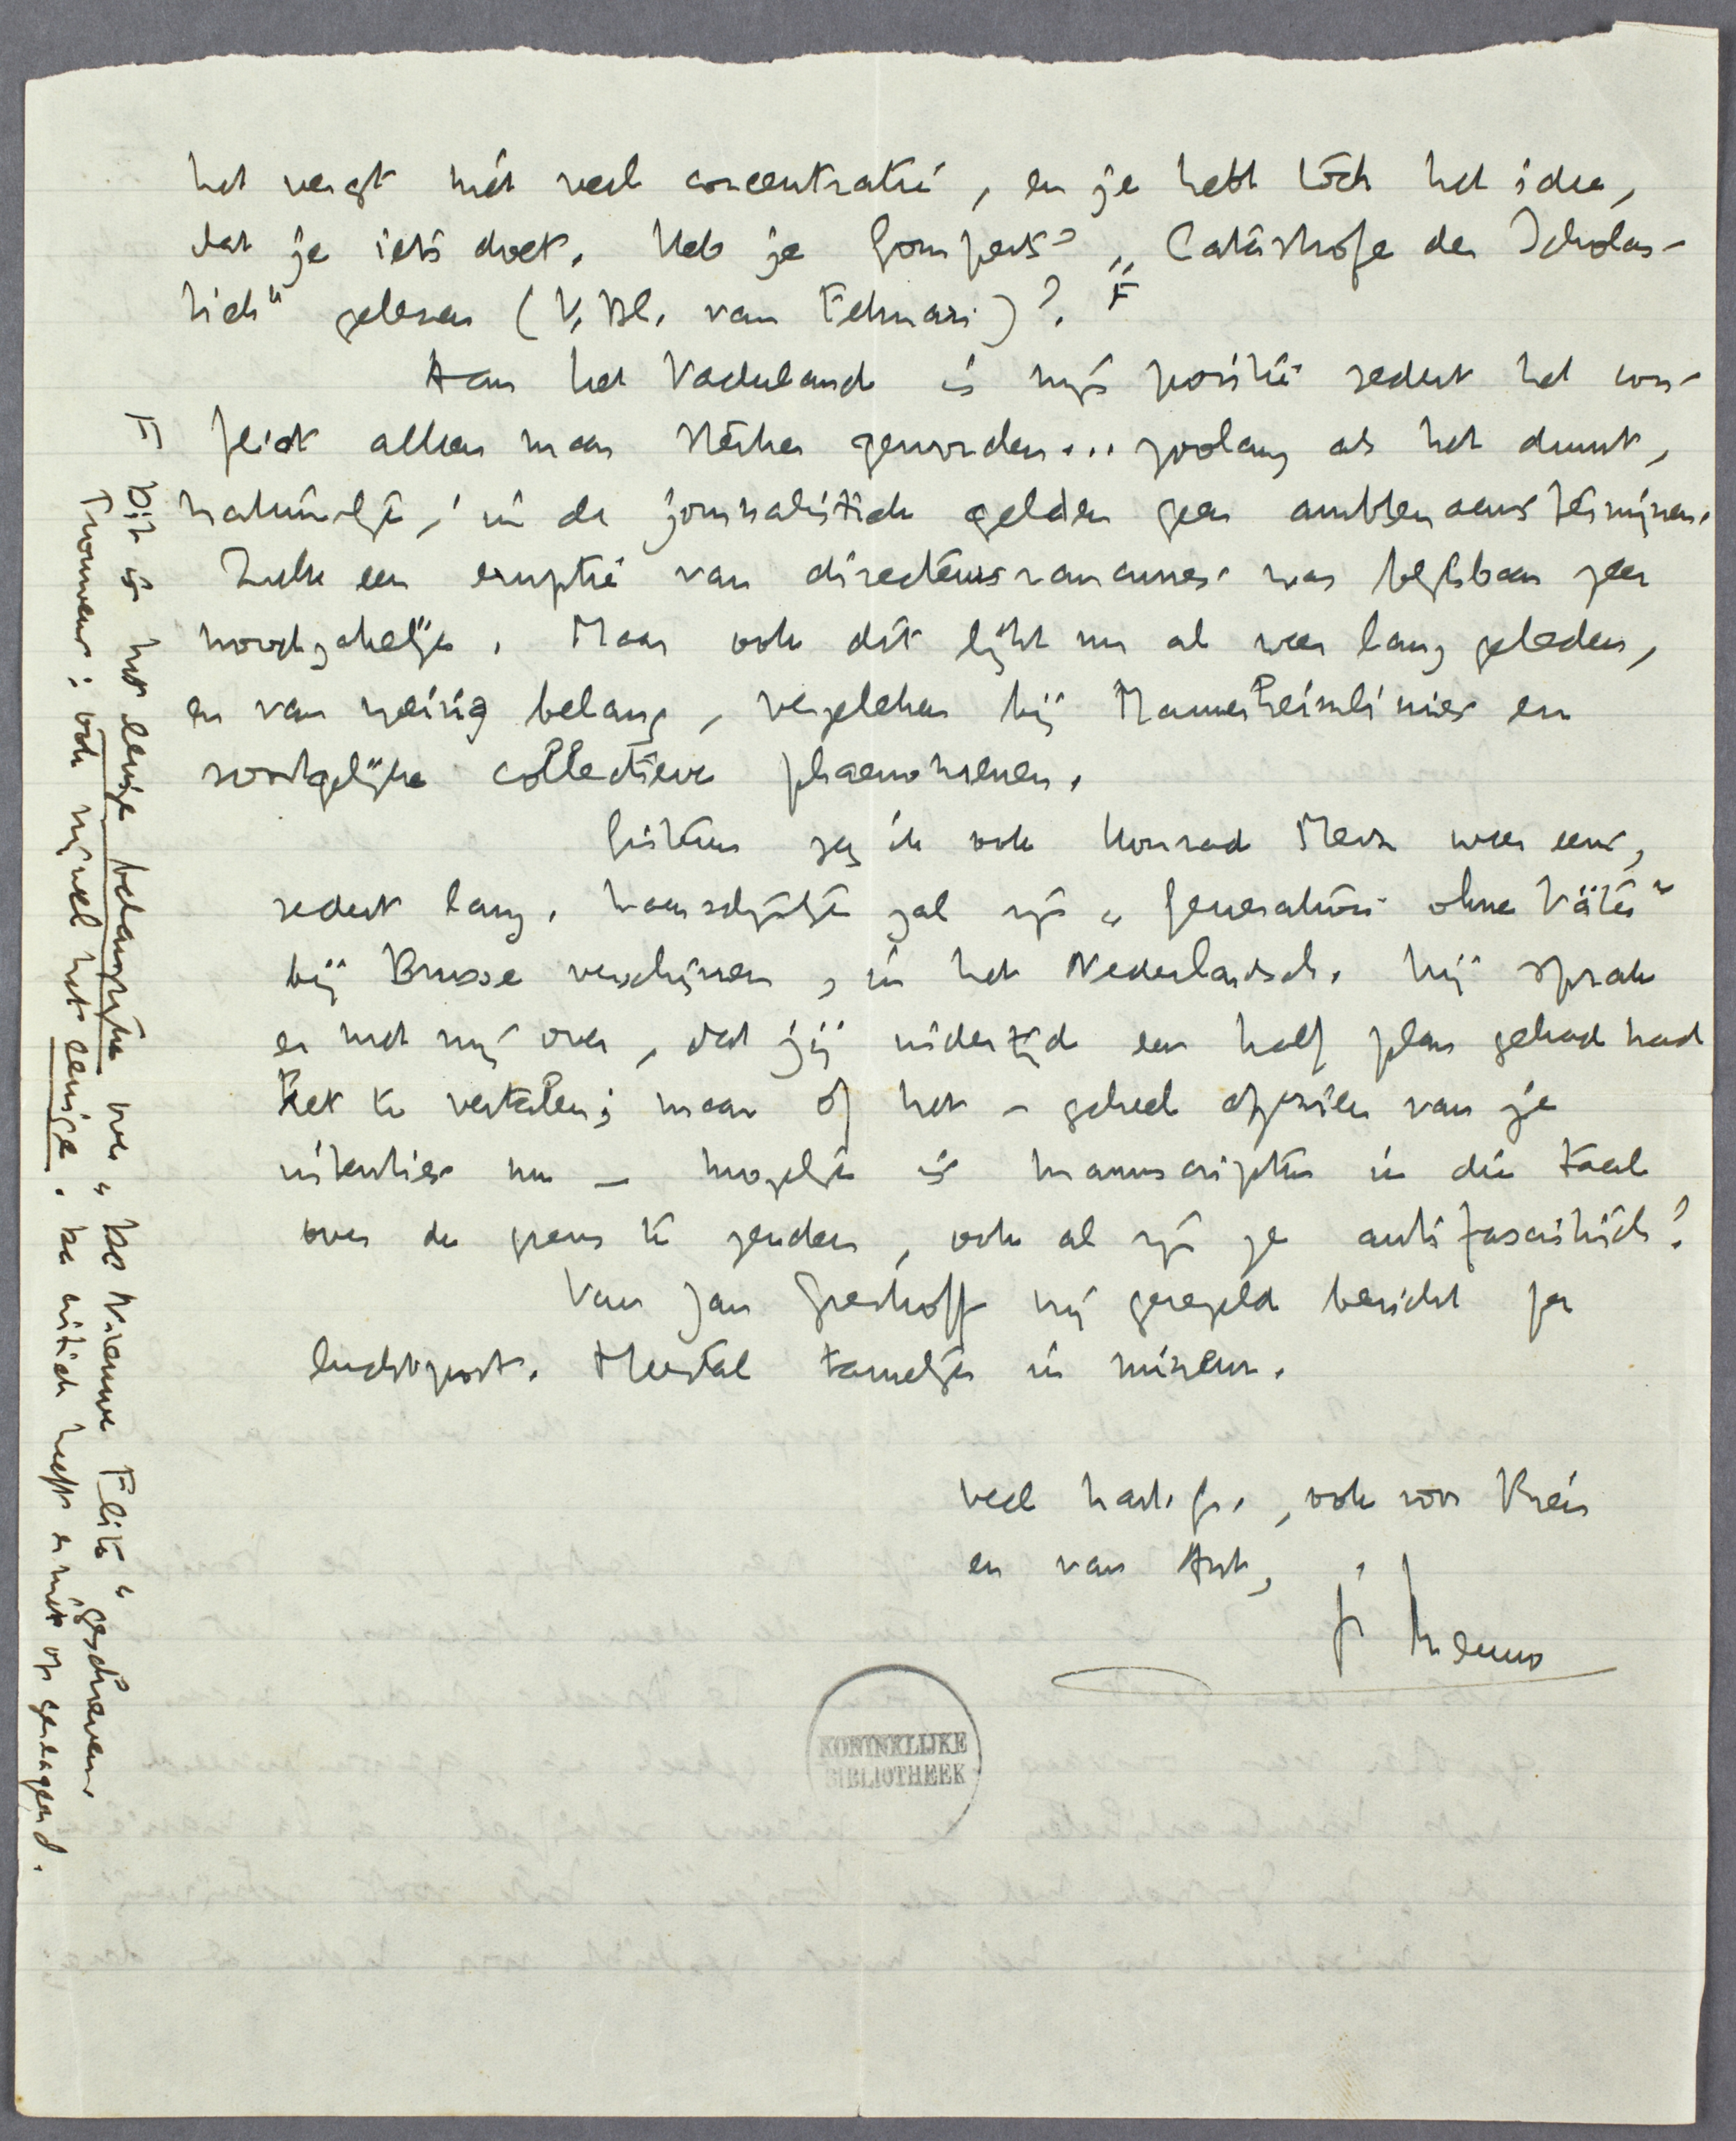 het vergt niet veel concentratie, en je hebt tòch het idee,
dat je iets doet. Heb je Gomperts' „Catastrophe der Scholas-
tiek" gelezen (V. Bl. van Februari)? F
Aan het Vaderland is mijn positie sedert het con-
flict alleen maar sterker geworden... zoolang als het duurt,
natuurlijk; in de journalistiek gelden geen ambtenaarstermijnen.
Zulk een eruptie van directeursrancunes was blijkbaar zeer
noodzakelijk. Maar ook dit lijkt nu al weer lang geleden,
en van weinig belang, vergeleken bij Mannerheimlinies en
soortgelijke collectieve phaenomenen.
Gisteren zag ik ook Konrad Merz weer eens,
sedert lang. Waarschijnlijk zal zijn „Generation ohne Väter"
bij Brusse verschijnen, in het Nederlandsch. Hij sprak
er met mij over, dat jij indertijd een half plan gehad had
het te vertalen; maar of het – geheel afgezien van je
intenties nu – mogelijk is manuscripten in die taal
over de grens te zenden, ook al zijn ze antifascistisch?
Van Jan Greshoff krijg geregeld bericht per
luchtpost. Meestal tamelijk in mineur.
veel hart. gr., ook voor Krein
en van Ant,
je Menno
KONINKLIJKE
BIBLIOTHEEK
F Dit is het eenige belangrijke over „De Nieuwe Elite" geschreven
Trouwens: ook mij wel het eenige. De critiek heeft er niet op gereageerd.